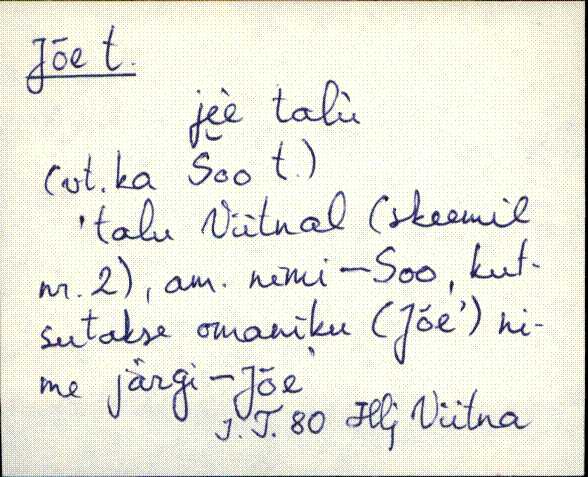 Jõe t.
jèe talù
(vt. ka Soo t.)
'talu Viitnal (skeemil
nr. 2), am. nimi - Soo, kut-
sutakse omaniku (Jõe') ni-
me järgi - Jõe'
J. T. 80 Hlj Viitna